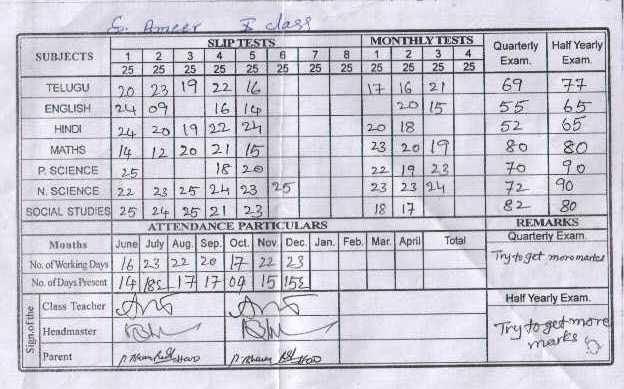 S. Ameer X class
SUBJECTS SLIP TESTS MONTHLY TESTS Quarterly Exam. Half Yearly Exam.
1 2 3 4 5 6 7 8 1 2 3 4
25 25 25 25 25 25 25 25 25 25 25 25
TELUGU 20 23 19 22 16 17 16 21 69 77
ENGLISH 24 09 16 14 20 15 55 65
HINDI 24 20 19 22 24 20 18 52 65
MATHS 14 12 20 21 15 23 20 19 80 80
P. SCIENCE 25 18 20 22 19 23 70 90
N. SCIENCE 22 23 25 24 23 25 23 23 24 72 90
SOCIAL STUDIES 25 24 25 21 23 18 17 82 80
ATTENDANCE PARTICULARS REMARKS
Months June July Aug. Sep. Oct. Nov. Dec. Jan. Feb. Mar. April Total Quarterly Exam.
No. of Working Days 16 23 22 20 17 22 23 Try to get more marks
No. of Days Present 14 17 17 09 15
Sign.of the Class Teacher Half Yearly Exam.
Headmaster Try to get more
marks
Parent